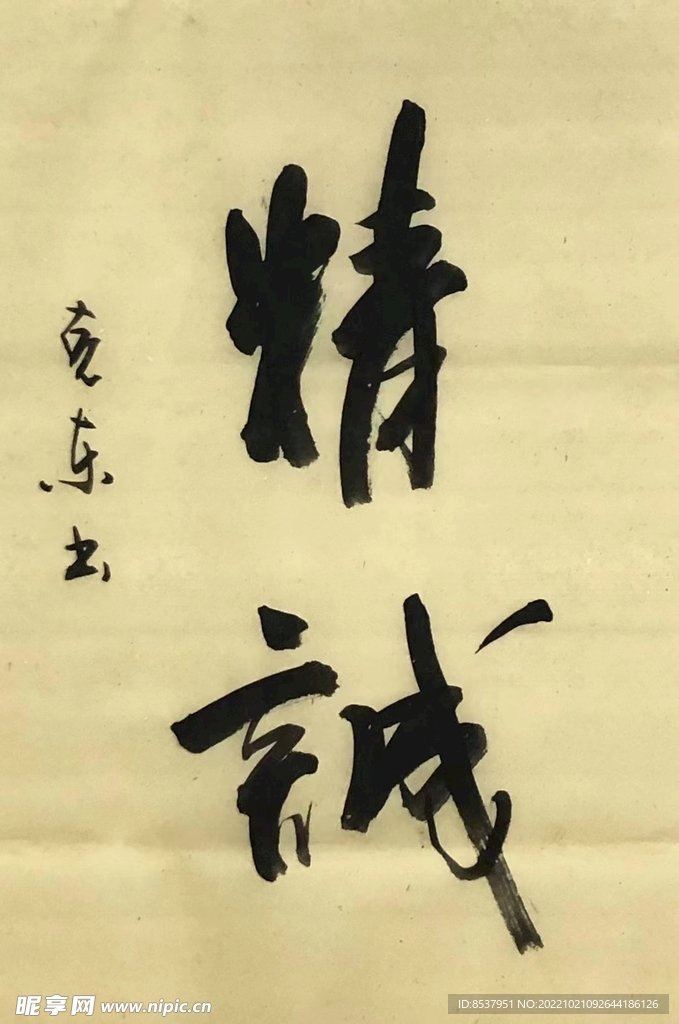 精誠
克东书
昵享网 www.nipic.cn
ID:8537951 NO:20221021092644186126